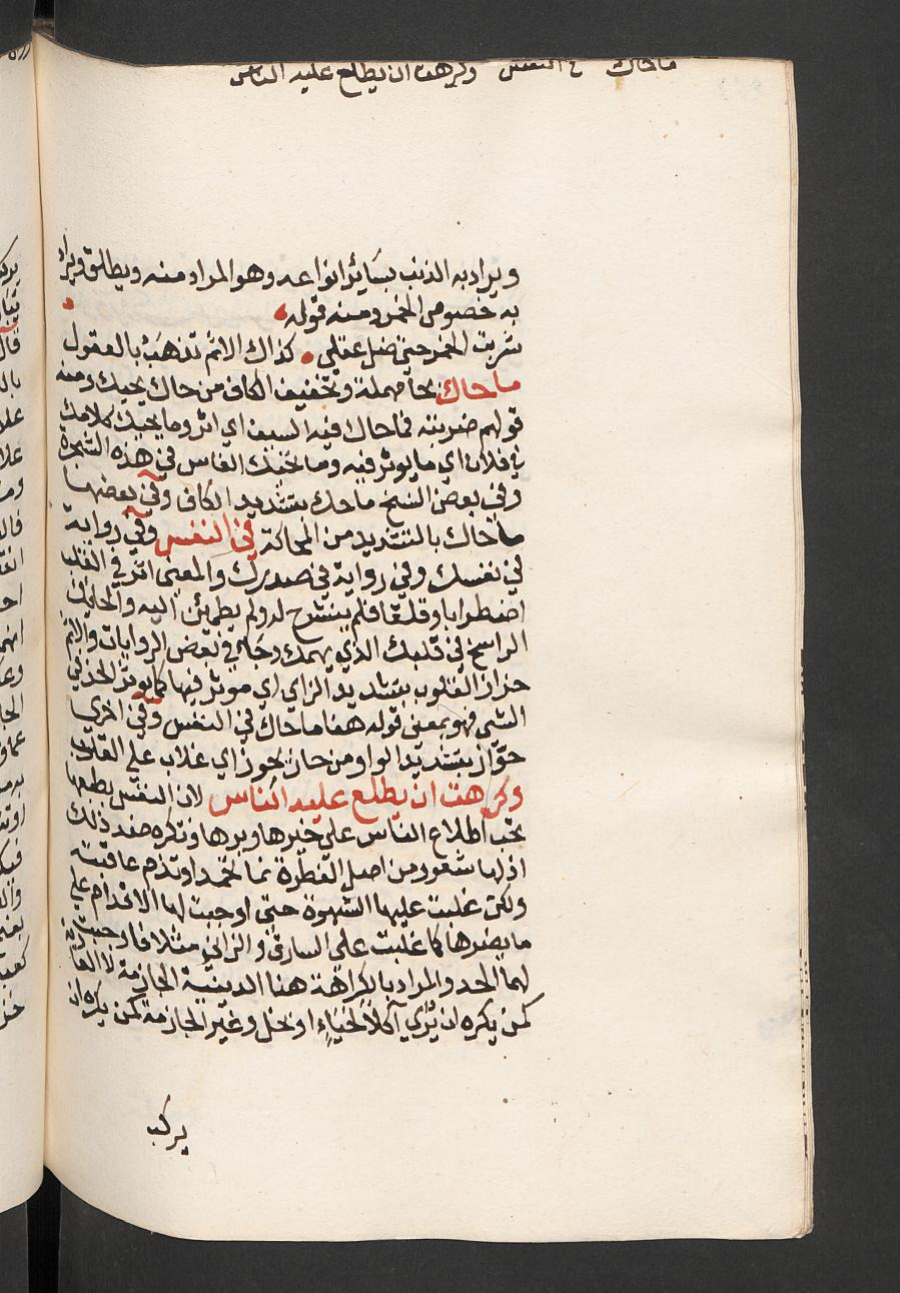 ماحاك في النفس وكرهت ان يطلع عليه الناس
ويراد به الذنب بسائر انواعه وهو المراد منه ويطلق ويراد
به خصوص الخمر ومنه قوله
شربت الخمر حتى ضل عقلي كذاك الاثم تذهب بالعقول
ماحاك بحا مهملة وتخفيف الكاف من حاك يحيك ومنه
قولهم ضربته فما حاك فيه السيف اي اثر وما يحيك كلامك
يا فلان اي ما يوثر فيه وما تحيك الفاس في هذه الشجرة
وفي بعض النسخ ماحك بتشديد الكاف وفي بعضها
ماحاك بالتشديد من المحاكة في النفس وفي رواية
في نفسك وفي رواية في صدرك والمعنى اثر في القلب
اضطرابا وقلقا فلم ينشرح له ولم يطمئن اليه والحايك
الراسخ في قلبك الذي يهمك وجا في بعض الروايات والاثم
حزاز القلوب بتشديد الزاي اي موثر فيها كما يوثر الحز في
الشي فهو بمعنى قوله هنا ماحاك في النفس وفي اخرى
حواز بتشديد الواو من حاز يحوز اي غلاب على القلوب
وكرهت ان يطلع عليه الناس لان النفس بطبعها
تحب اطلاع الناس على خيرها وبرها وتكره ضد ذلك
اذ لها شعور من اصل الفطرة بما تحمد او تذم عاقبته
ولكن غلبت عليها الشهوة حتى اوجبت لها الاقدام على
ما يضرها كما غلبت على السارق والزاني مثلا فاوجبت
لهما الحد والمراد بالكراهة هنا الدينية الجازمة لا العادية
كمن يكره ان يرى آكلا لحياء او بخل وغير الجازمة كمن يكره ان
يركب